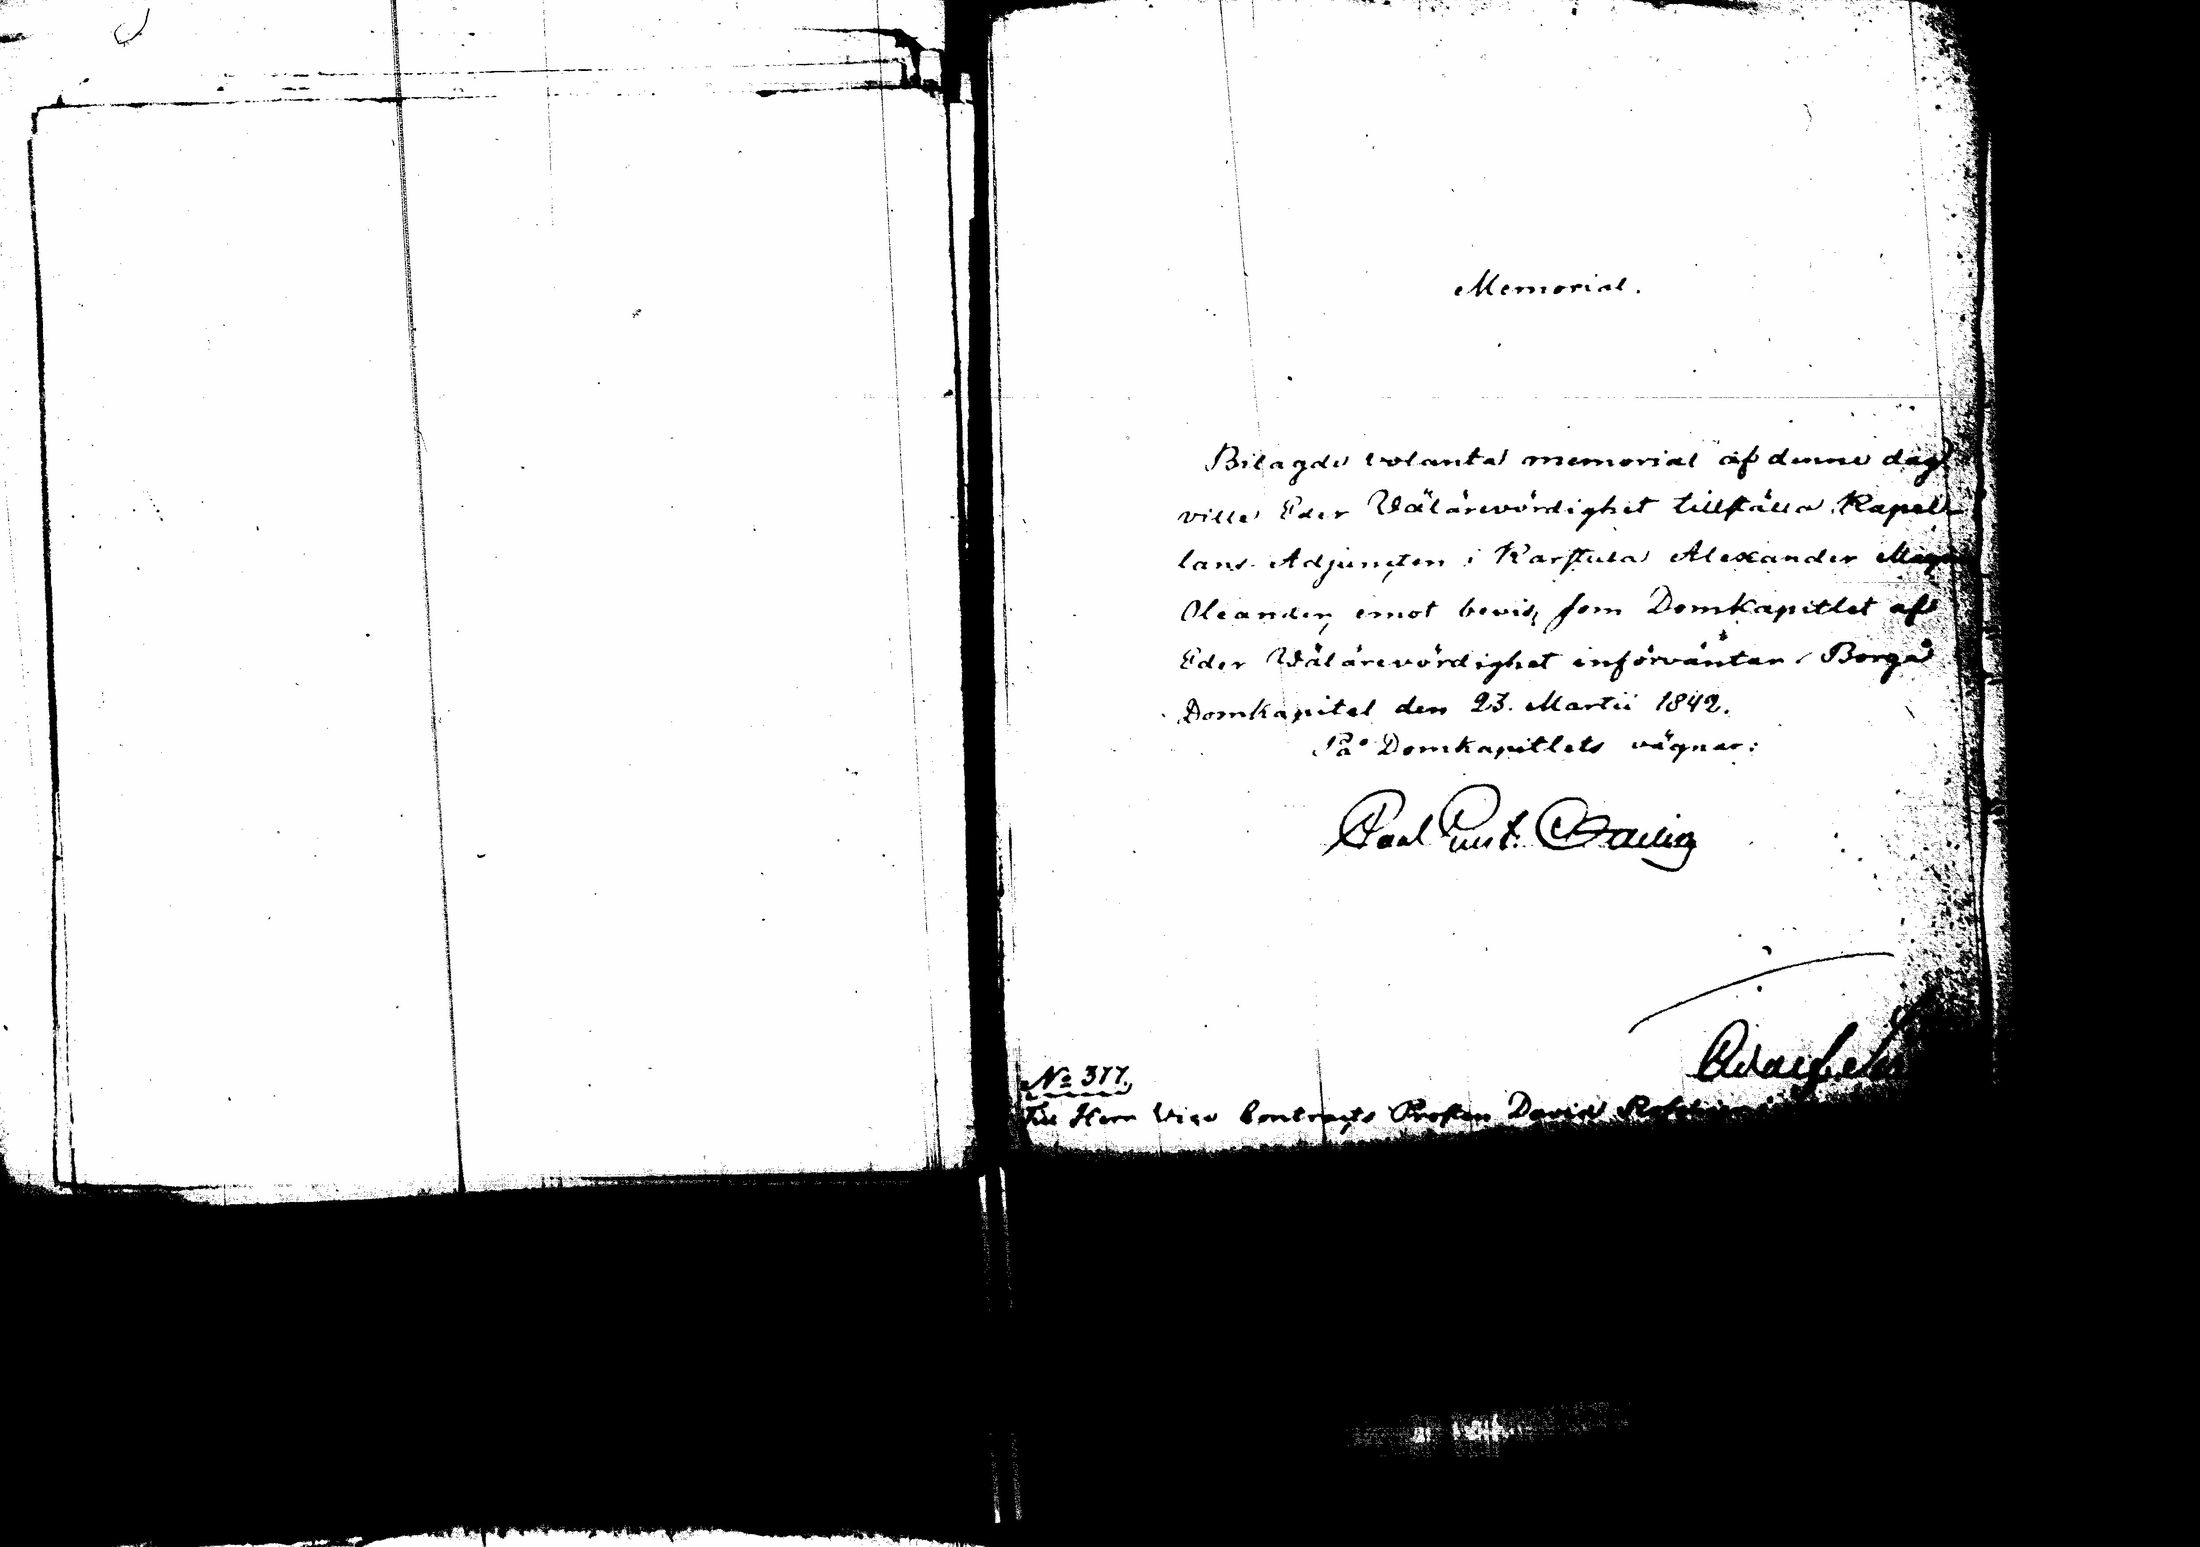 Memorial.
Bilagde volanta memorial af denne dag
ville Eder Wälärevördighet tillställa Kapel-
lans Adjuncten i Karstula Alexander
Oleander, emot bevis, som Domkapitlet af
Eder Wälärevördighet införväntar. Borgå
Domkapitel den 23. Martii 1842.
På Domkapitlets vägnar:
No 377.
Till Herr Vice Contracts Prosten David